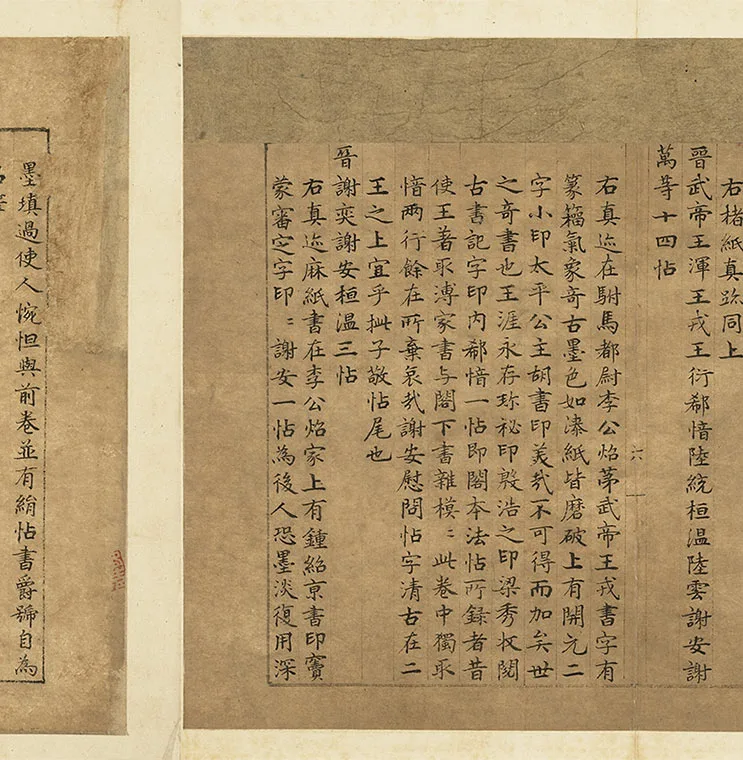 右楮紙真迹同上
晉武帝王渾王戎王衍郗愔陸統桓温陸雲謝安謝
萬等十四帖
六
右真迹在駙馬都尉李公炤苐武帝王戎書字有
篆籀氣象奇古墨色如漆紙皆磨破上有開元二
字小印太平公主胡書印美㢤不可得而加矣世
之奇書也王涯永存珎祕印殷浩之印梁秀收閱
古書記字印内郗愔一帖即閣本法帖所録者昔
使王著取溥家書与閣下書雜模〻此卷中獨取
愔兩行餘在所棄哀㢤謝安慰問帖字清古在二
王之上宜乎批子敬帖尾也
晉謝奕謝安桓温三帖
右真迹麻紙書在李公炤家上有鍾紹亰書印竇
蒙審定字印〻謝安一帖為後人恐墨淡復用深
墨填過使人惋怛與前卷並有絹帖書爵號自為